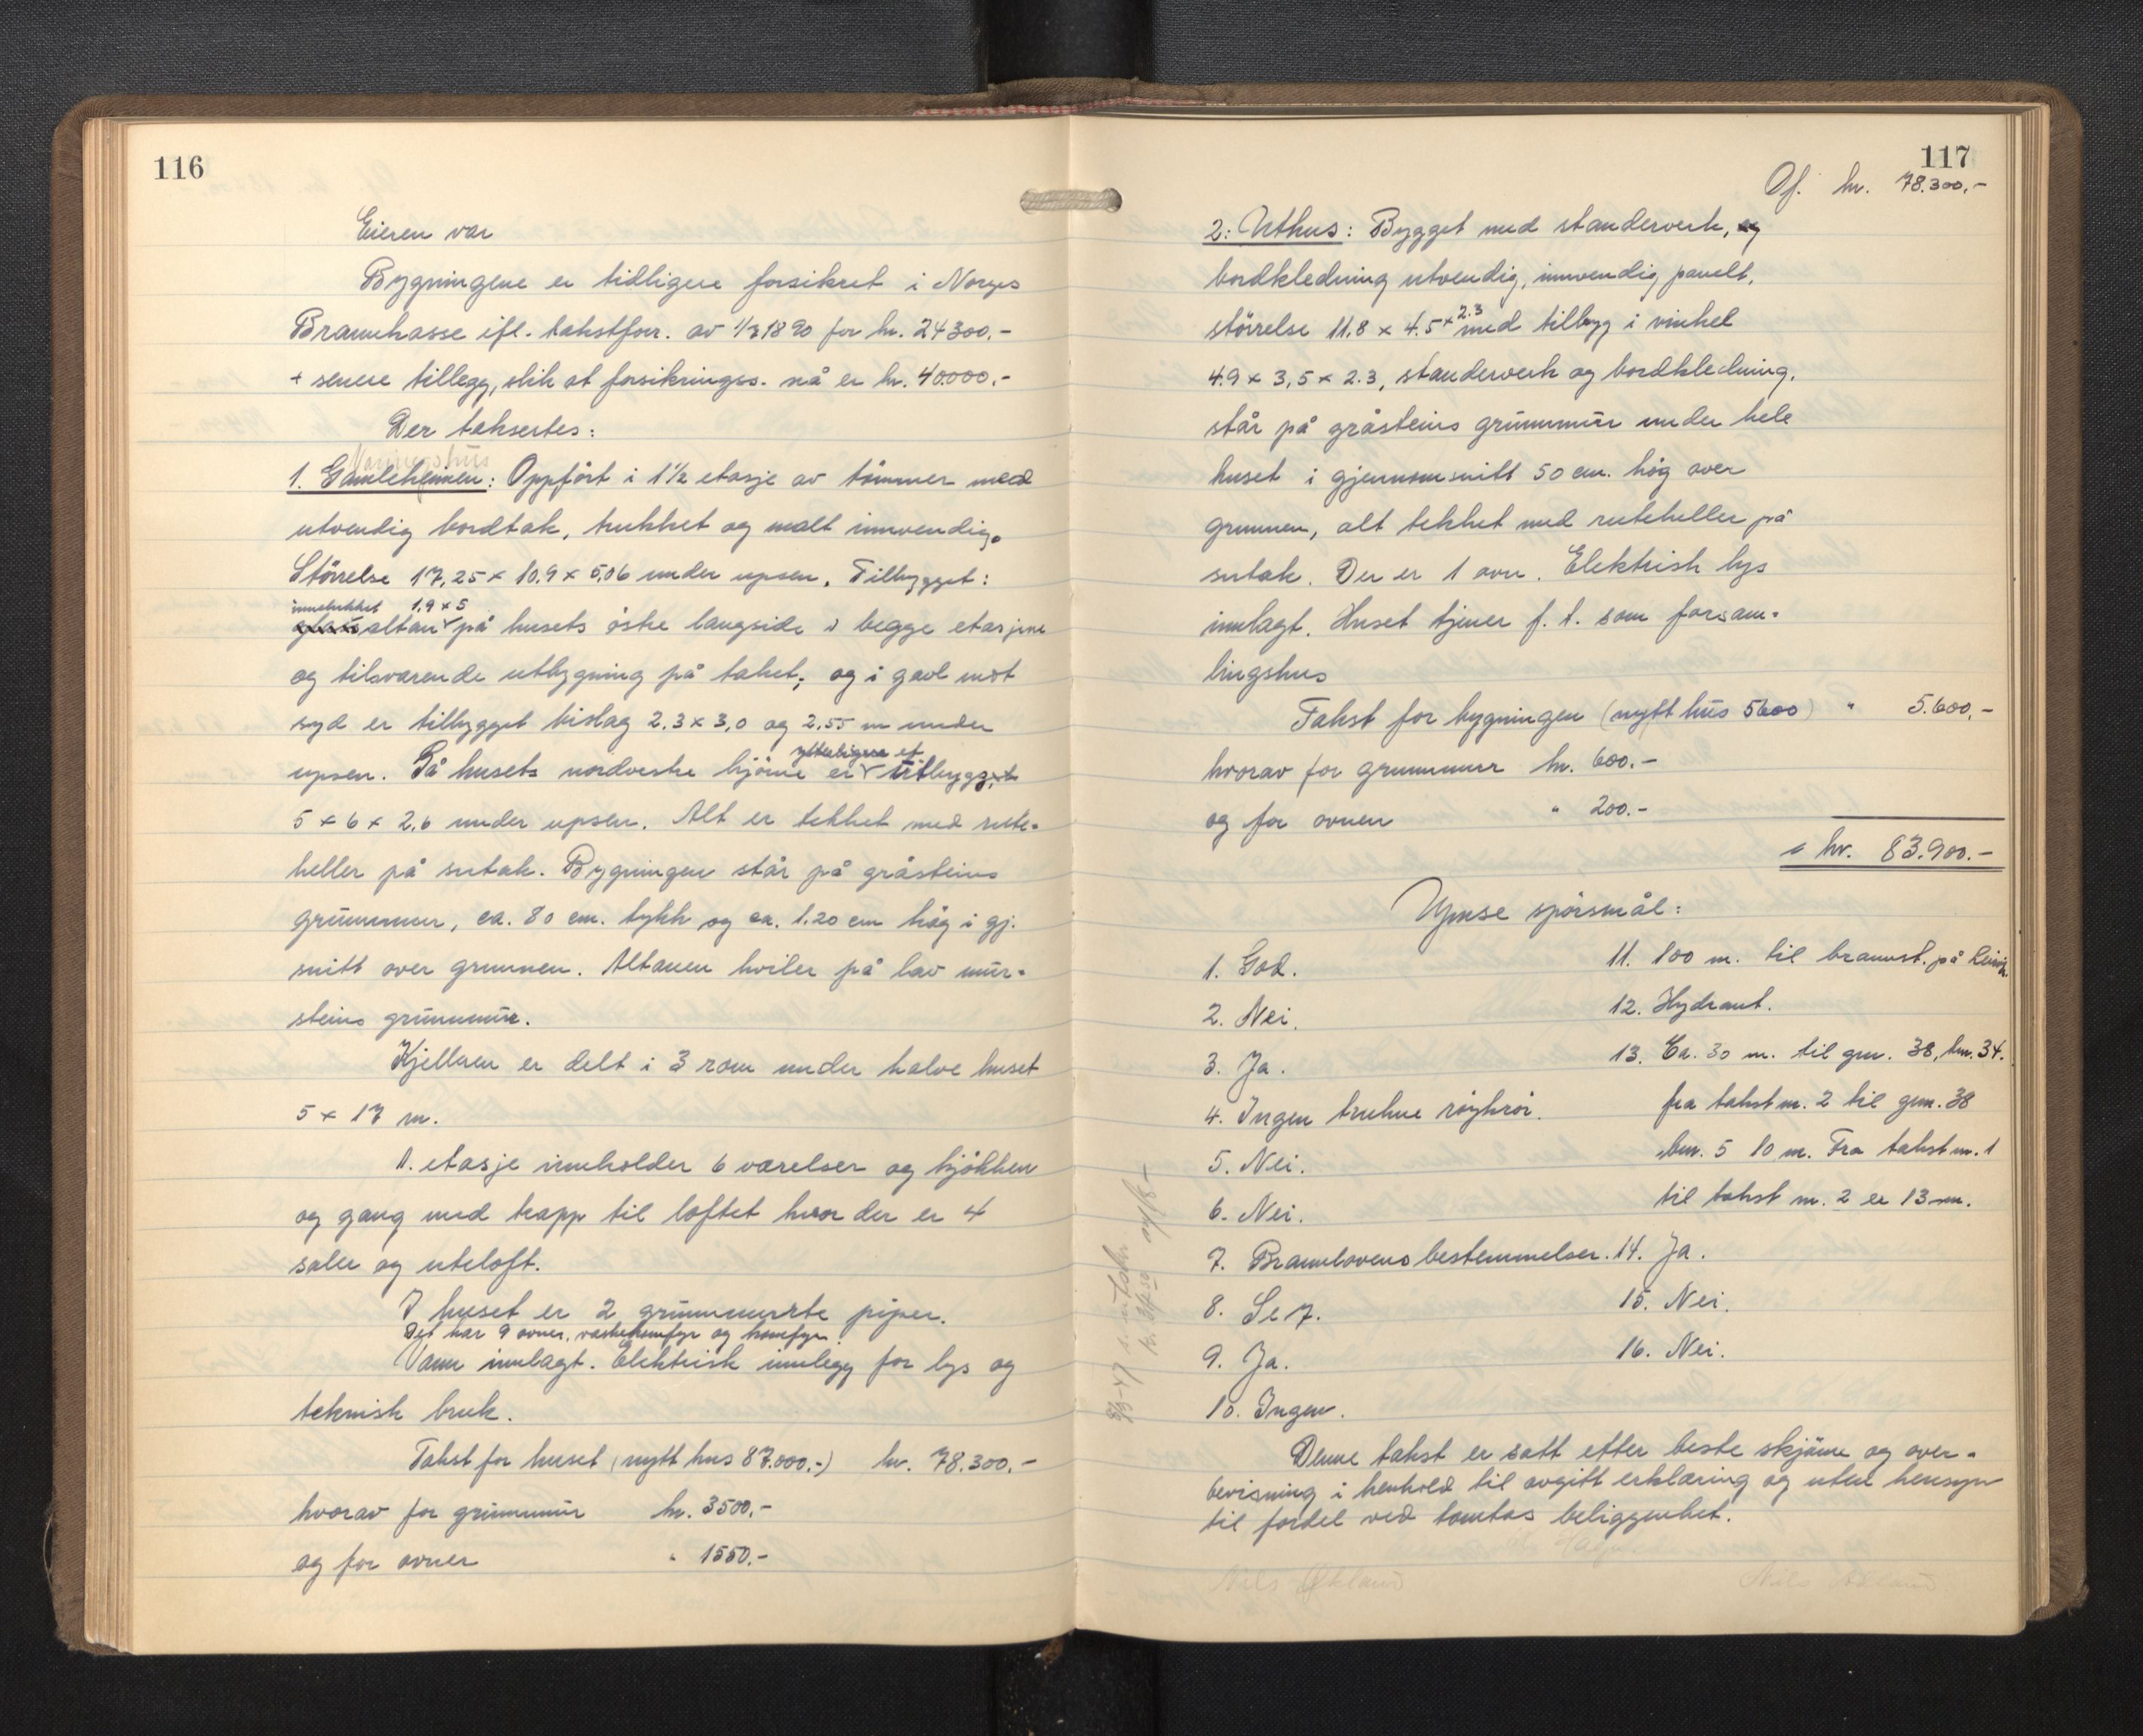 116
Eieren var
Bygningene er tidligere forsikret i Norges
Brannkasse ifl. takstforr. av 1/3 1890 for kr. 24300.-
+ senere tillegg, slik at forsikringss. nå er kr. 40.000.-
Der taksertes:
Våningshus
1. Gamleheimen: Oppfört i 1½ etasje av tömmer med
utvendig bordtak, trukket og malt innvendig.
Störrelse 17,25 x 10.9 x 5,06 under upsen. Tilbygget:
innelukket 1,9 x 5
altan på husets östre langside i begge etasjene
og tilsvarende utbygning på taket; og i gavl mot
syd er tilbygget bislag 2.3 x 3,0 og 2.55 m under
ytterligere et
upsen. På husets nordvestre hjörne er tilbygg,
5 x 6 x 2,6 under upsen. Alt er tekket med rute-
heller på sutak. Bygningen står på gråsteins
grunnmur, ca. 80 cm. tykk og ca. 1.20 cm hög i gj.
snitt over grunnen. Altanen hviler på lav mur-
steins grunnmur.
Kjelleren er delt i 3 rom under halve huset
5 x 17 m.
1. etasje inneholder 6 værelser og kjökken
og gang med trapp til loftet hvor der er 4
saler og uteloft.
I huset er 2 grunnmurte piper.
Det har 9 ovner, vaskekomfyr og komfyr.
Vann innlagt. Elektrisk innlegg for lys og
teknisk bruk.
Takst for huset (nytt hus 87.000,-) kr. 78.300,-
hvorav for grunnmur kr. 3500,-
og for ovner " 1550.-
117
Of. kr. 78.300,-
2: Uthus: Bygget med standerverk, og
bordkledning utvendig, innvendig panelt,
störrelse 11.8 x 4.5 x 2.3 med tilbygg i vinkel
4.9 x 3,5 x 2.3, standerverk og bordkledning,
står på gråsteins grunnmur under hele
huset i gjennomsnitt 50 cm. hög over
grunnen, alt tekket med ruteheller på
sutak. Der er 1 ovn. Elektrisk lys
innlagt. Huset tjener f. t. som forsam-
lingshus
Takst for bygningen (nytt hus 5600) " 5.600,-
hvorav for grunnmur kr. 600.-
og for ovnen " 200.-
kr. 83.900.-
Ymse spörsmål:
1. God.
2. Nei.
3. Ja.
4. Ingen trukne röykrör.
5. Nei.
6. Nei.
7. Brannlovens bestemmelser.
8. Se 7.
9. Ja.
10. Ingen.
11. 100 m. til brannst. på
12. Hydrant.
13. Ca. 30 m. til gnr. 38, bnr. 34.
fra takst nr. 2 til gnr. 38
bnr. 5 10 m. Fra takst nr. 1
til takst nr. 2 er 13 m.
14. Ja.
15. Nei.
16. Nei.
Denne takst er satt etter beste skjönn og over-
bevisning i henhold til avgitt erklæring og uten hensyn
til fordel ved tomtas beliggenhet.
Nils Økland